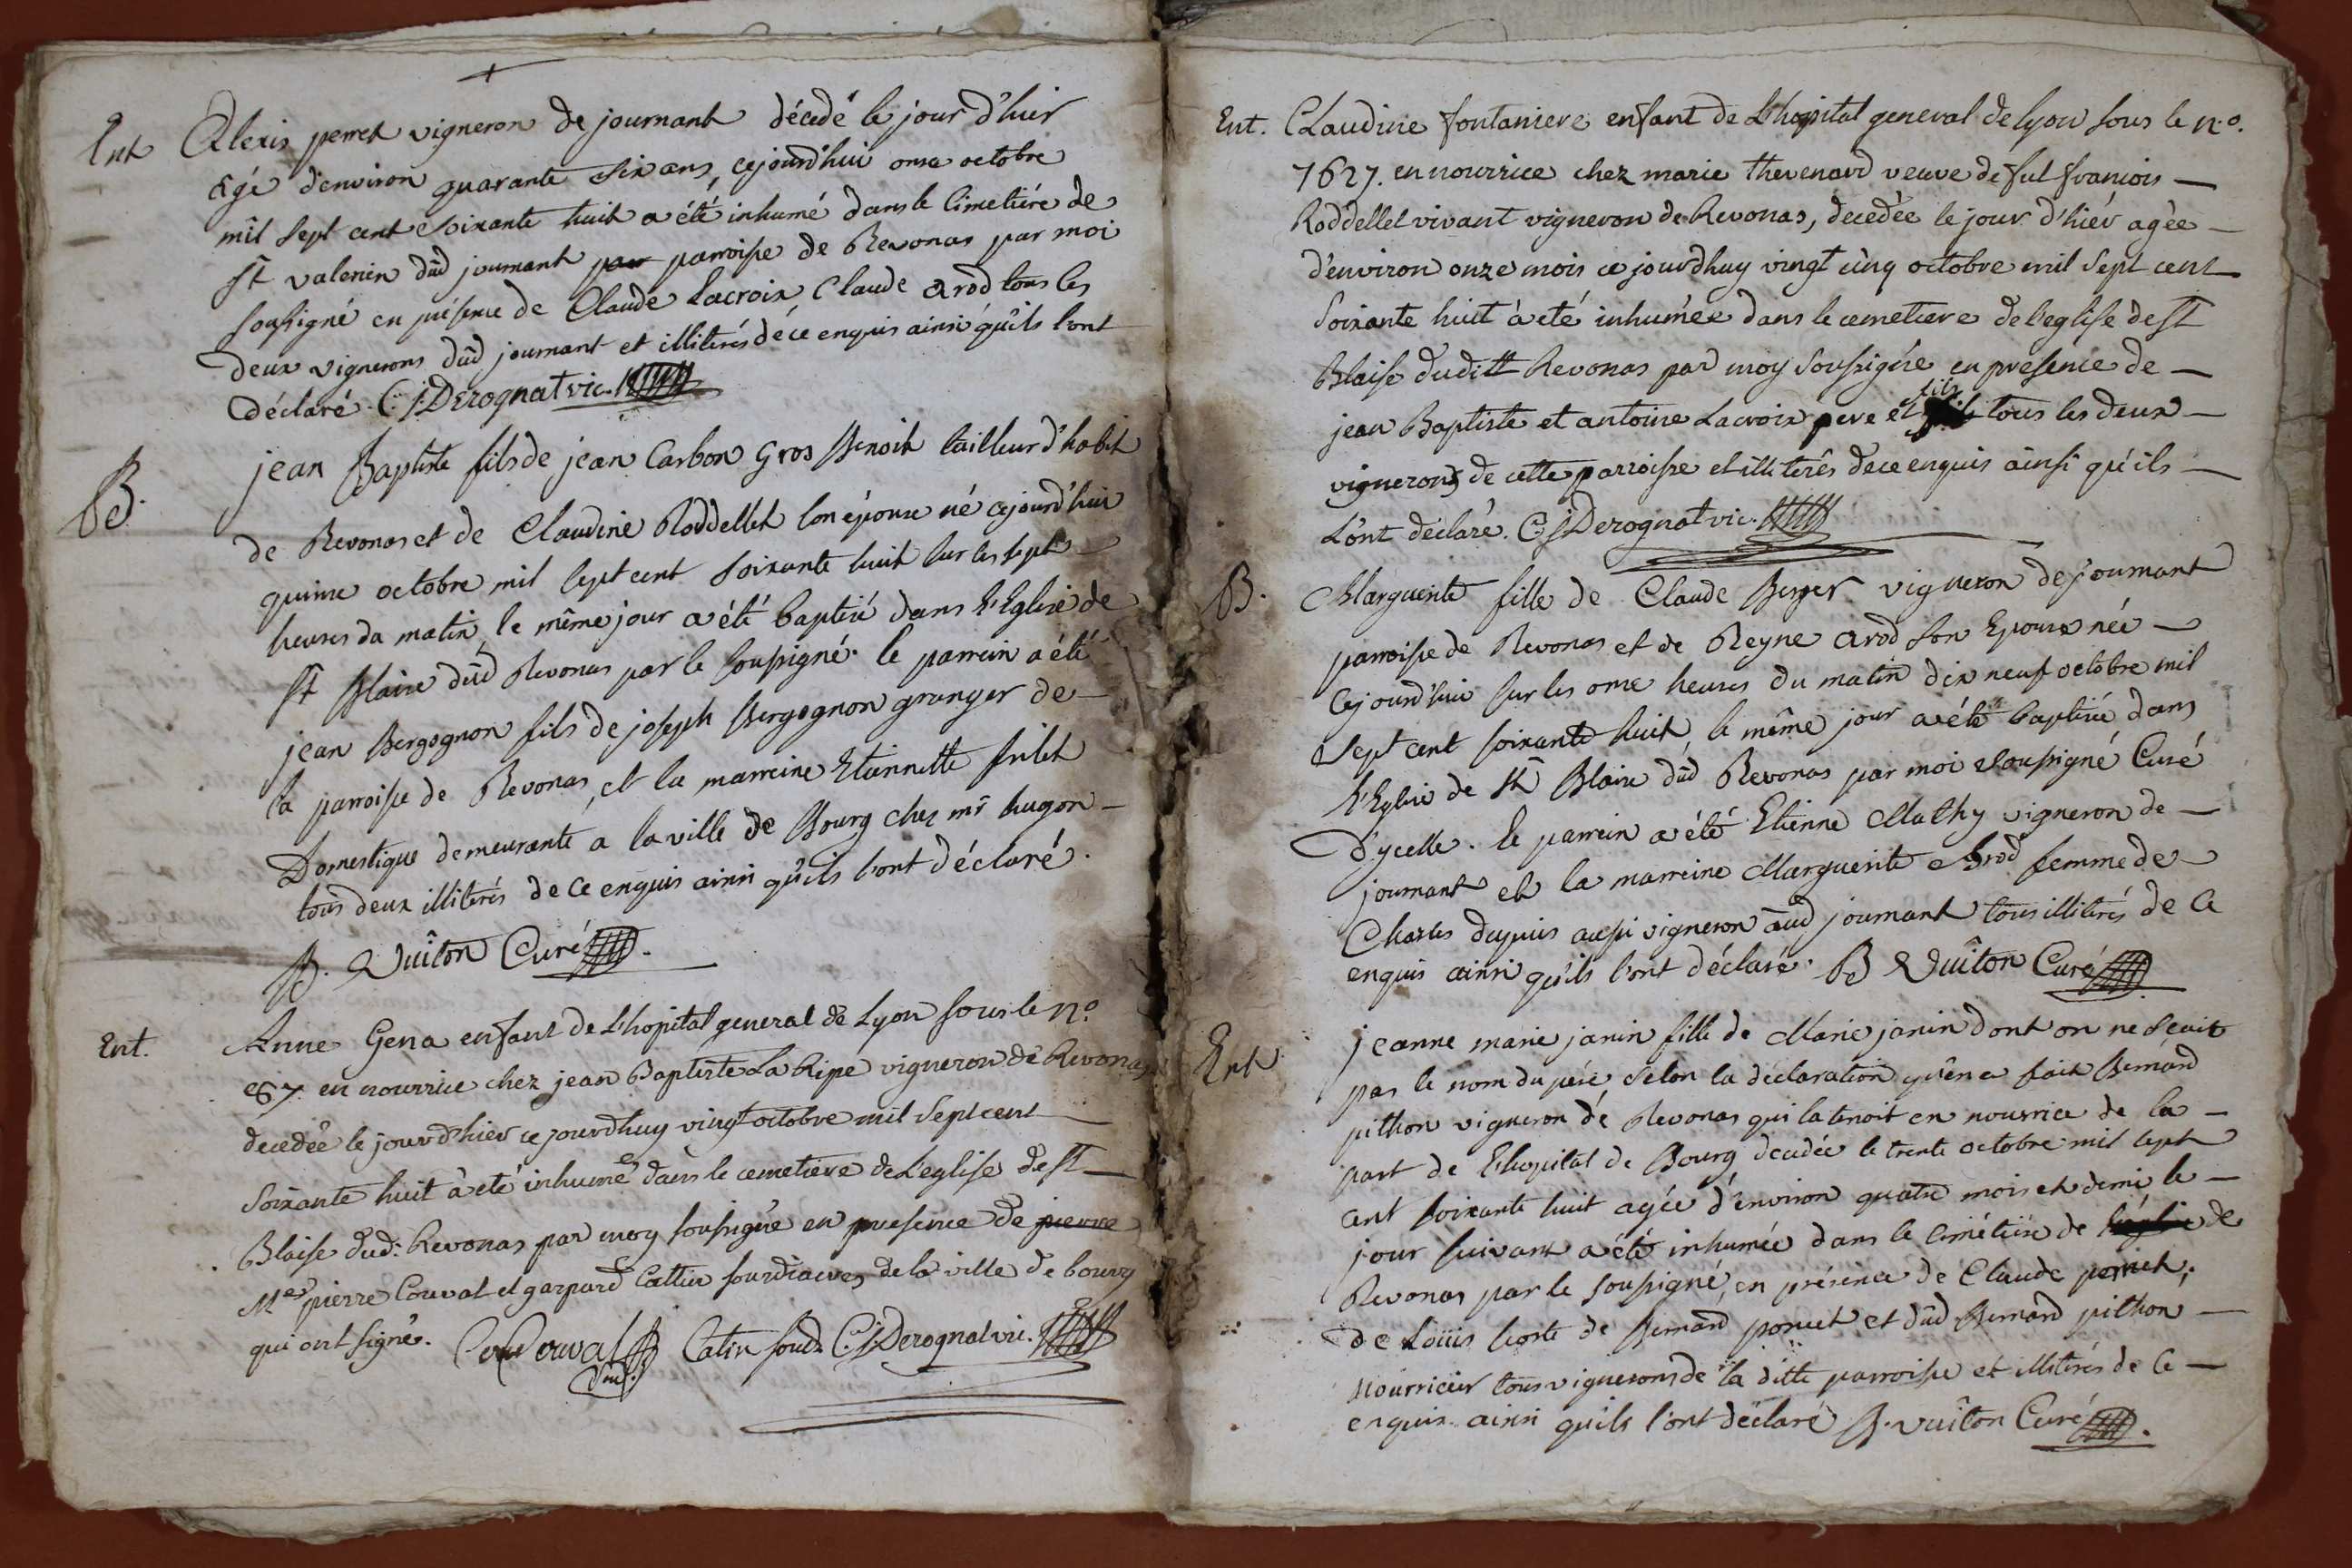 Ent Alexis perret vigneron de journant décédé le jour d'hier
âgé d'environ quarante six ans, cejourd'hui onze octobre
mil sept cent soixante huit a été inhumé dans le Cimetière de
st valerien dud journant par parroisse de Revonas par moi
soussigné en présence de Claude Lacroix Claude arod tous les
deux vignerons dud journant et illiterés de ce enquis ainsi qu'ils l'ont
déclaré. C: J: Derognat vic.
B. jean Baptiste fils de jean Carbon Gros Benoit tailleur d'habit
de Revonas et de Claudine Roddellet son épouse né cejourd'hui
quinze octobre mil sept cent soixante huit sur les sept
heures da matin, le même jour a été baptisé dans l'Eglise de
st Blaise dud Revonas par le soussigné. le parrein a été
jean Bergognon fils de joseph Bergognon granger de
la parroisse de Revonas, et la marreine Etiennette frilet
Domestique demeurante a la ville de Bourg chez mr hugon
tous deux illiterés de ce enquis ainsi qu'ils l'ont déclaré.
B. Vuiton Curé.
Ent. Anne Gena enfant de L'hopital general de Lyon sous le no
67. en nourrice chez jean Baptiste La Ripe vigneron de Revonas
decedée le jour d'hier ce jourdhuy vingt octobre mil sept cent
soixante huit à eté inhumée dans le cemetiere de L'eglise de st
Blaise dud: Revonas par moy soussigné en presence de pierre
Mes pierre Couval et gaspard Cattin sousdiacres de la ville de bourg
qui ont signé. Couval Catin soud. C: J: Derognat vic.
Ent. Claudine fontaniere enfant de L'hopital general de lyon sous le no.
7627. en nourrice chez marie thevenard veuve de fut francois
Roddellet vivant vigneron de Revonas, decedée le jour d'hiér agée
d'environ onze mois ce jourdhuy vingt cinq octobre mil sept cent
soixante huit à eté inhumée dans le cemetiere de l'eglise de st
Blaise dudit Revonas par moy soussigné en presence de
jean Baptiste et antoine Lacroix pere et fils tous les deux
vignerons de cette parroisse et illiterés de ce enquis ainsi qu'ils
L'ont déclaré. C: J: Derognat vic.
B. Marguerite fille de Claude Berger vigneron de journant
parroisse de Revonas et de Reyne arod son Epouse née
cejourd'hui sur les onze heures du matin dix neuf octobre mil
sept cent soixante huit le même jour a été baptisé dans
l'Eglise de st Blaise dud Revonas par moi soussigné Curé
d'ycelle. le parrein a été Etienne Mathy vigneron de
journant et la marreine Marguerite Arod femme de
Charles dupuis aussi vigneron aud journant tous illiterés de ce
enquis ainsi qu'ils l'ont déclaré. B Vuiton Curé
Ent jeanne marie janin fille de Marie janin dont on ne scait
pas le nom du pére, selon la déclaration qu'en a fait Bernard
pithon vigneron de Revonas qui la tenoit en nourrice de la
part de l'hopital de Bourg décédée le trente octobre mil sept
cent soixante huit agée d'environ quatre mois et demi le
jour suivant a été inhumée dans le cimétière de l'église de
Revonas par le soussigné, en présence de Claude perret,
de Loüis de Bernard poncet et dud Bernard pithon
nourricier tous vignerons de la ditte parroisse et illiterés de ce
enquis ainsi qu'ils l'ont déclaré B. Vuiton Curé.